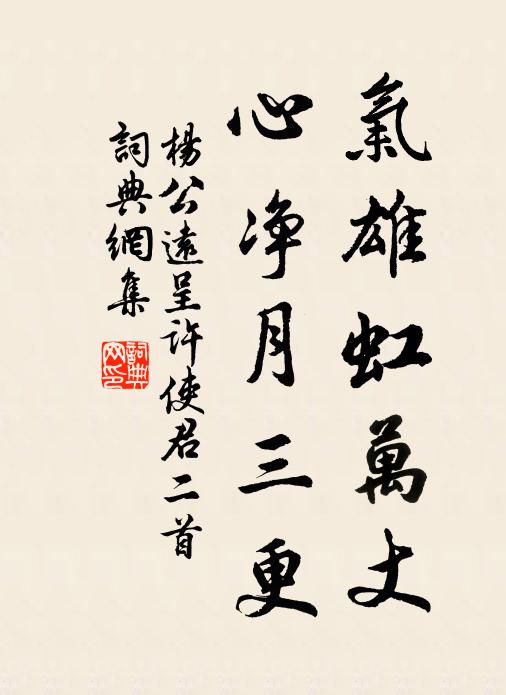 氣雄虹萬丈
心净月三更
楊公遠呈许使君二首
詞典網集
詞典
网印